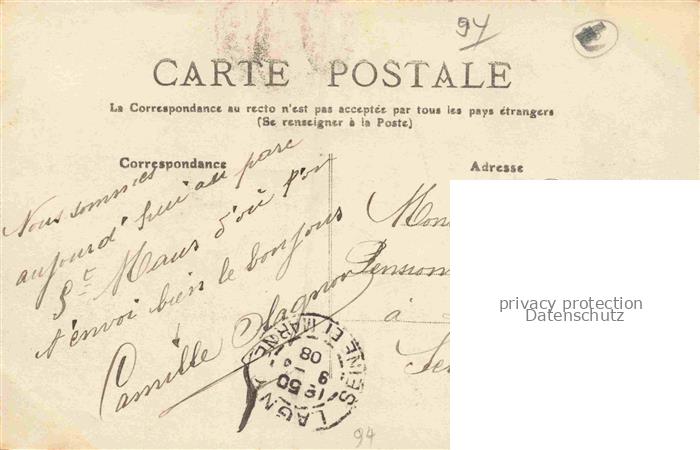 94
CARTE POSTALE
La Correspondance au recto n'est pas acceptée par tous les pays étrangers
(Se renseigner à la Poste)
Correspondance
Nous sommes
aujourd'hui au parc
St Maur d'où l'on
t'envoi bien le bonjour
Camille
Adresse
Mon
Pension
à
privacy protection
Datenschutz
LAGNY
SEINE ET MARNE
08
94